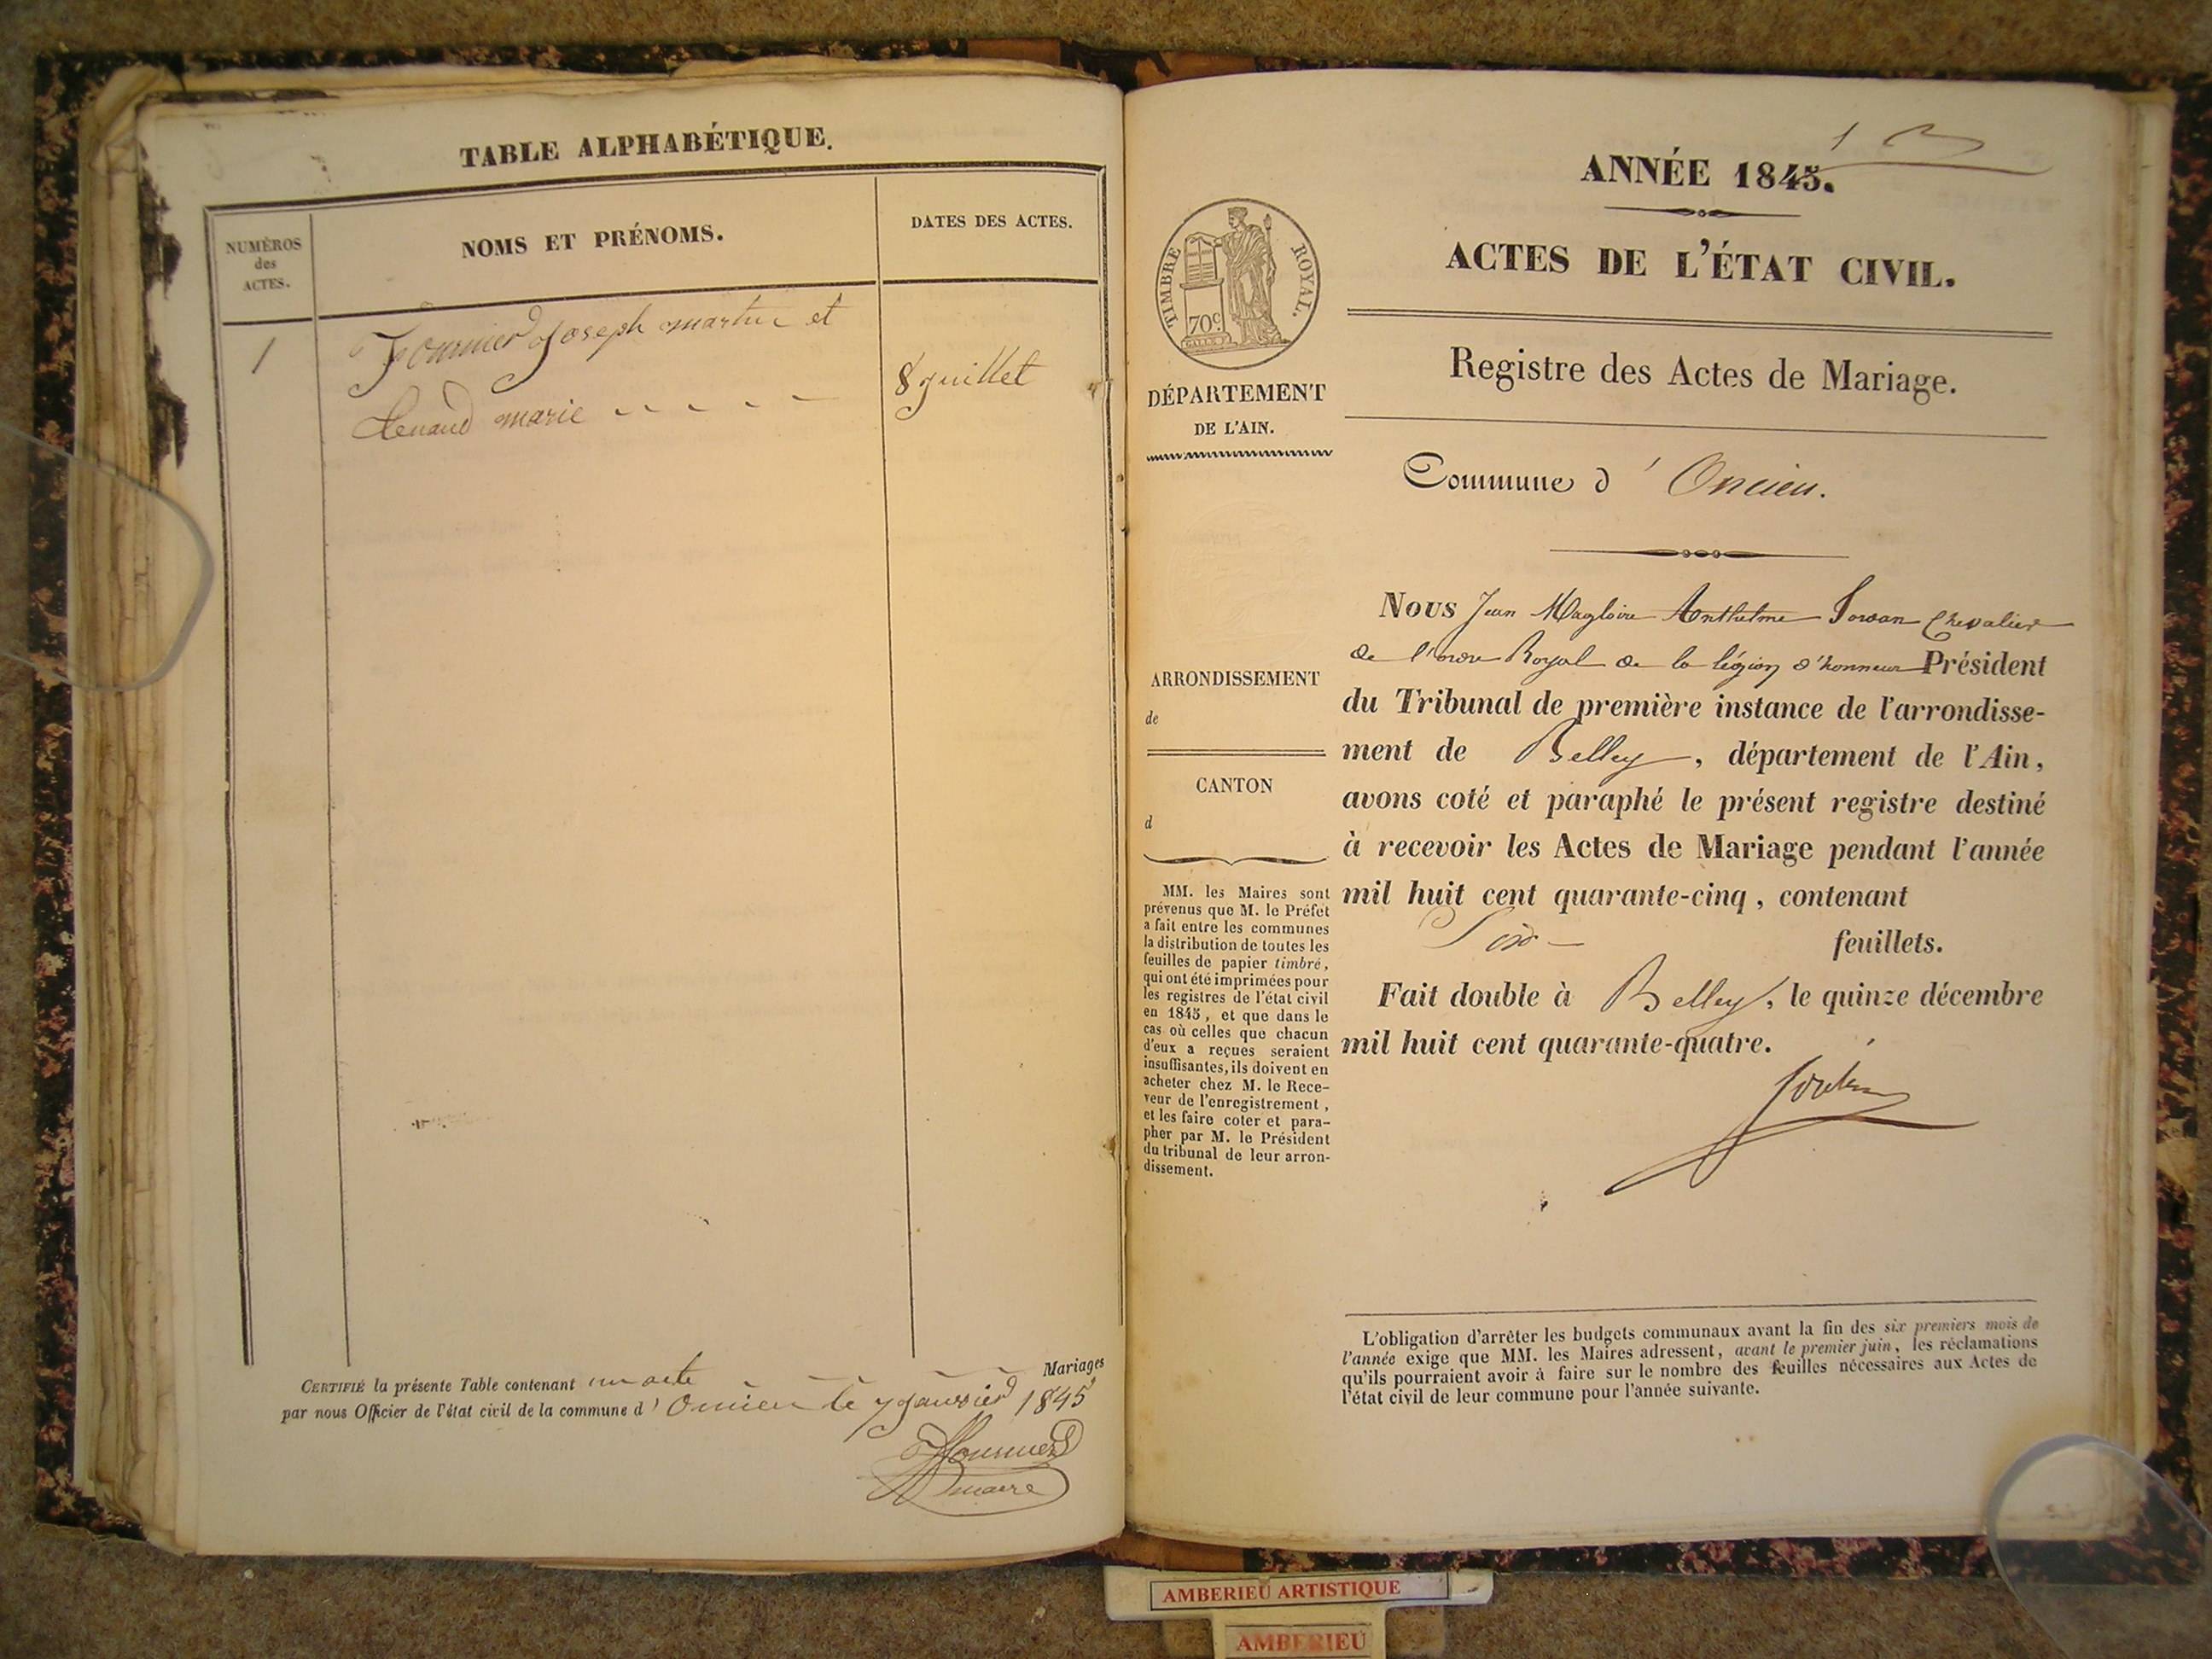 TABLE ALPHABÉTIQUE.
NUMÉROS
des
ACTES.
NOMS ET PRÉNOMS.
DATES DES ACTES.
1
Fournier Joseph martin et
marie
8 juillet
CERTIFIÉ la présente Table contenant un acte Mariages
par nous Officier de l'état civil de la commune d' Oncieu le 7 janvier 1845
Fournier
maire
1
ANNÉE 1845.
ACTES DE L'ÉTAT CIVIL.
TIMBRE ROYAL.
70c
DÉPARTEMENT
DE L'AIN.
ARRONDISSEMENT
de
CANTON
d
MM. les Maires sont
prévenus que M. le Préfet
a fait entre les communes
la distribution de toutes les
feuilles de papier timbré,
qui ont été imprimées pour
les registres de l'état civil
en 1845, et que dans le
cas où celles que chacun
d'eux a reçues seraient
insuffisantes, ils doivent en
acheter chez M. le Rece-
veur de l'enregistrement,
et les faire coter et para-
pher par M. le Président
du tribunal de leur arron-
dissement.
Registre des Actes de Mariage.
Commune d' Oncieu.
Nous Jean Magloire Anthelme Chevalier
de l'ordre Royal de la légion d'honneur Président
du Tribunal de première instance de l'arrondisse-
ment de Belley, département de l'Ain,
avons coté et paraphé le présent registre destiné
à recevoir les Actes de Mariage pendant l'année
mil huit cent quarante-cinq, contenant
Six feuillets.
Fait double à Belley, le quinze décembre
mil huit cent quarante-quatre.
L'obligation d'arrêter les budgets communaux avant la fin des six premiers mois de
l'année exige que MM. les Maires adressent, avant le premier juin, les réclamations
qu'ils pourraient avoir à faire sur le nombre des feuilles nécessaires aux Actes de
l'état civil de leur commune pour l'année suivante.
AMBERIEU ARTISTIQUE
AMBERIEU